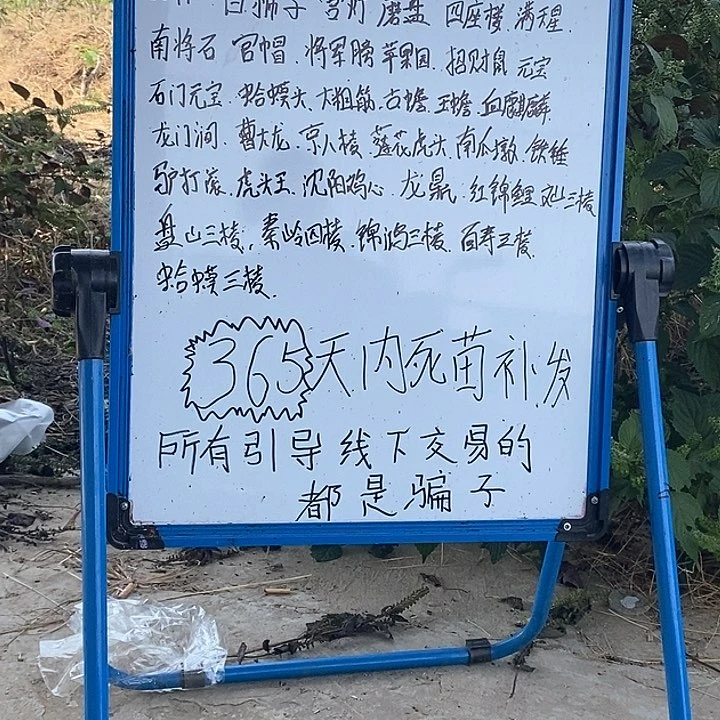 白狮子 宫灯 磨盘 四座楼 满堂星
南将石 官帽 将军膀 苹果园 招财鼠 元宝
石门元宝 蛤蟆头 大粗筋 古蟾 玉蟾 血麒麟
龙门涧 曹大龙 京八棱 莲花虎头 南瓜墩 铁锤
驴打滚 虎头王 沈阳鸡心 龙鼎 红锦鲤 三棱
盘山三棱 秦岭四棱 锦鸿三棱 百寿三棱
蛤蟆三棱
365天内死苗补发
所有引导线下交易的
都是骗子